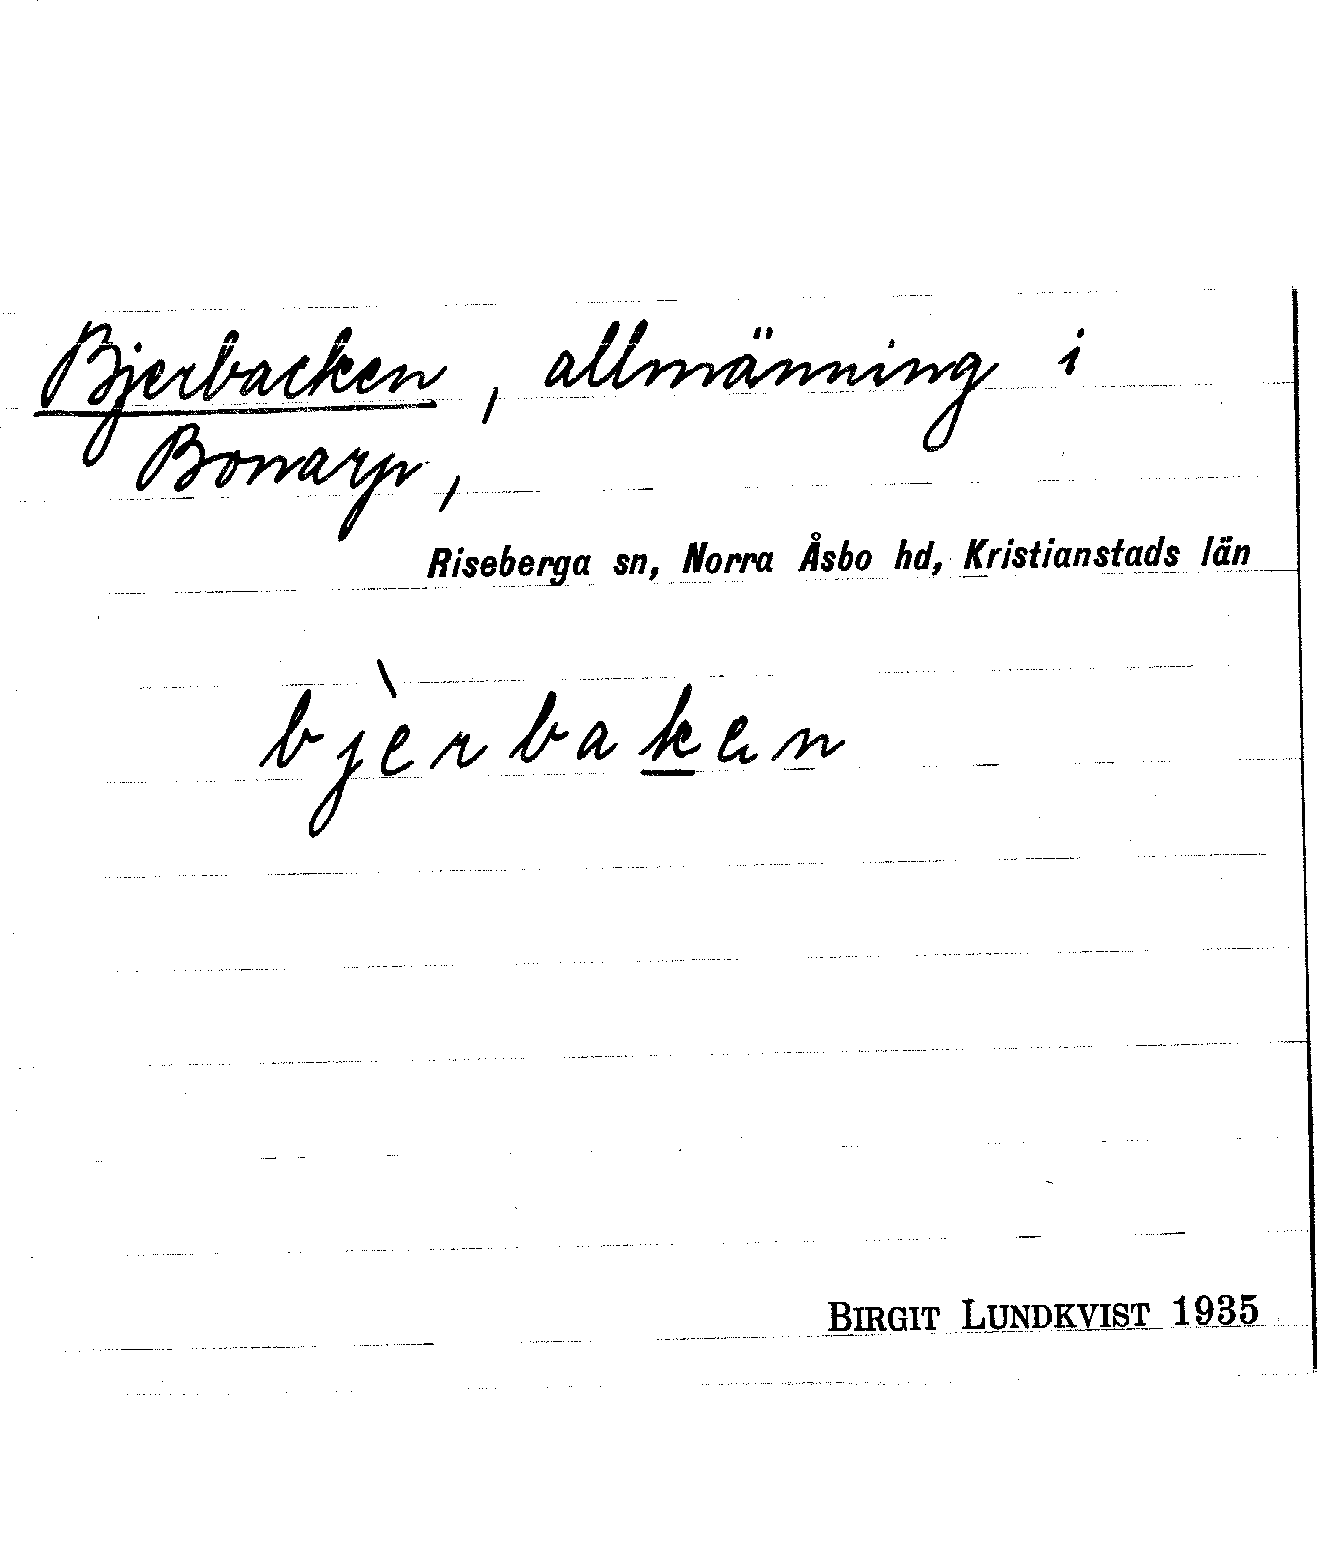 Bjerbacken, allmänning i
Bonarp,
Riseberga sn, Norra Åsbo hd, Kristianstads län
bjèrbaken
BIRGIT LUNDKVIST 1935